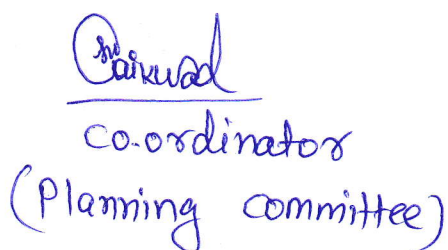 Gaikwad
co-ordinator
(Planning committee)